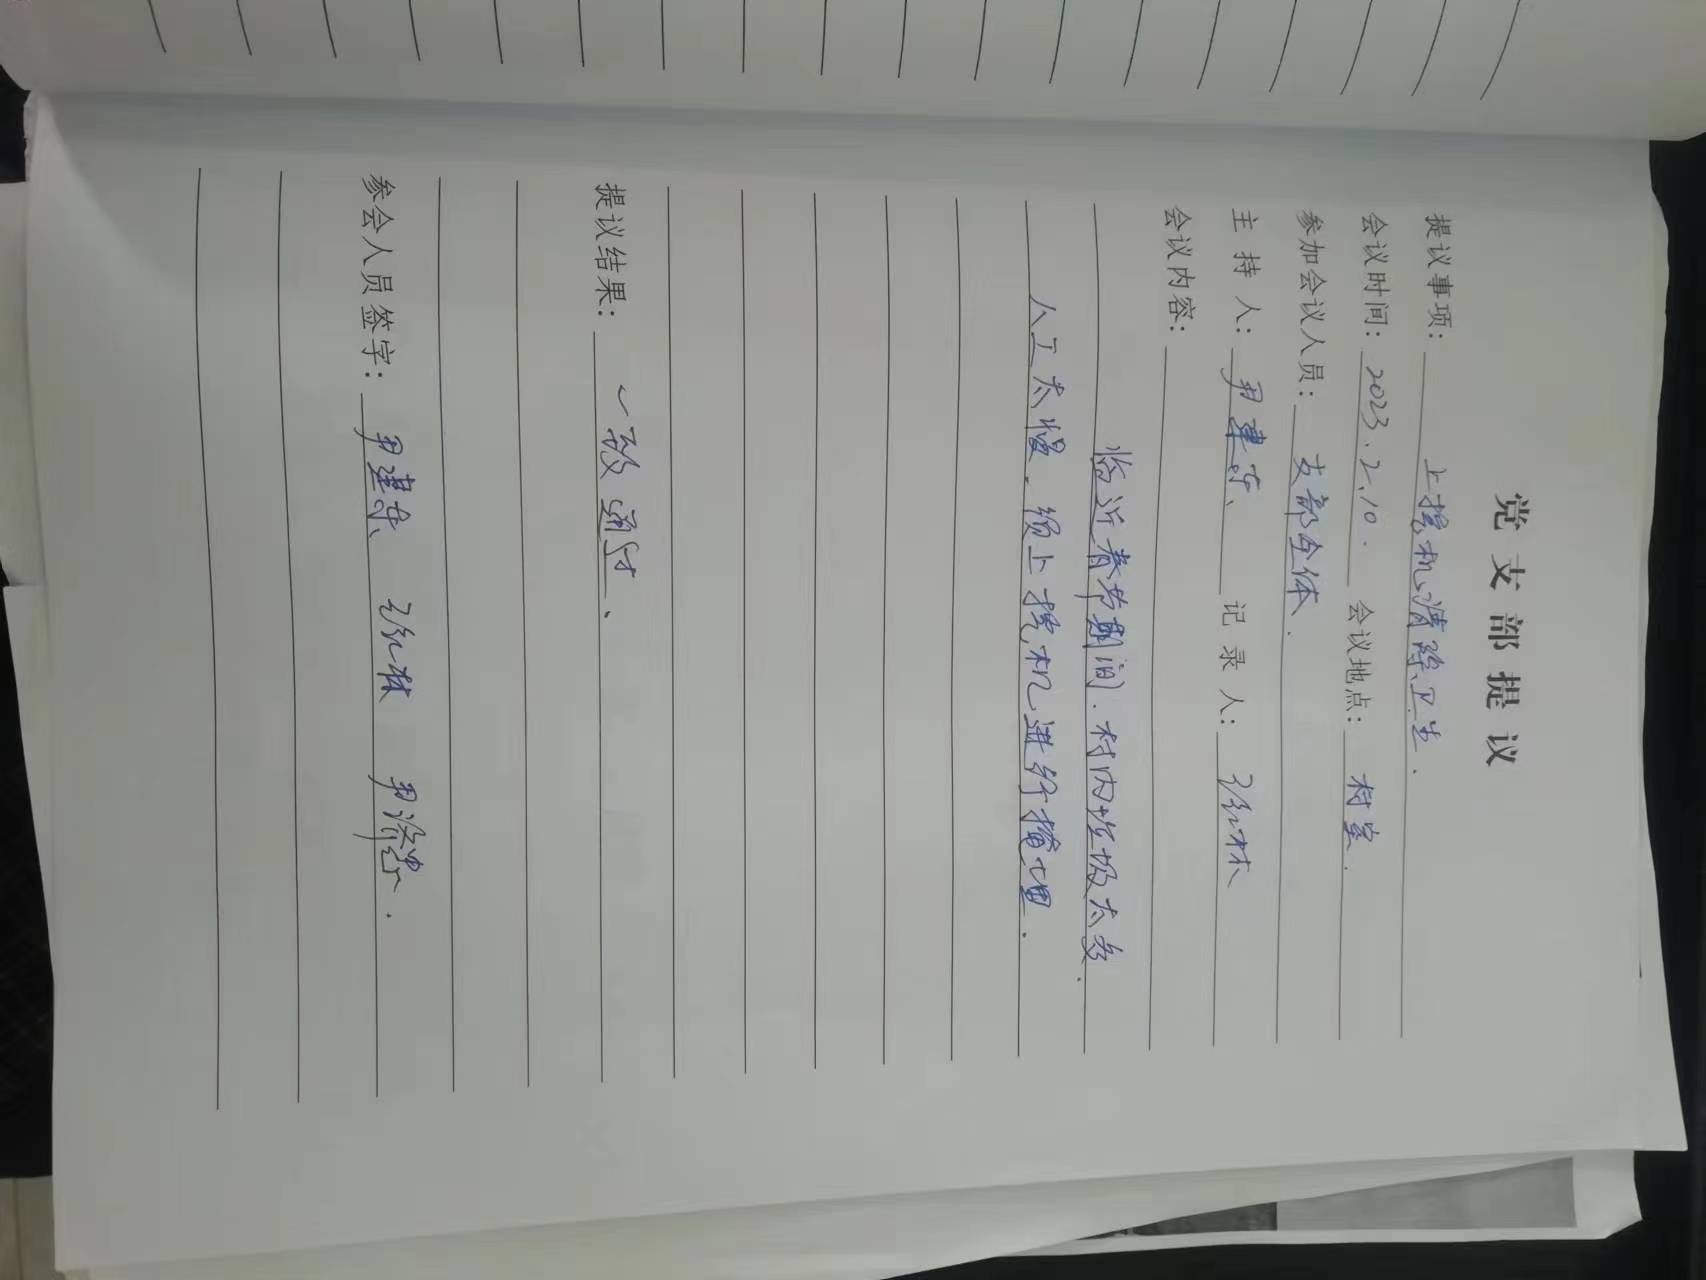 党支部提议
提议事项：上挖机清除卫生.
会议时间：2023.2.10. 会议地点：村室.
参加会议人员：支部全体.
主持人：尹建 记录人：
会议内容：
临近春节期间.村内垃圾太多.
人工太慢.须上挖机进行掩埋.
提议结果：一致通过、
参会人员签字：尹建 尹